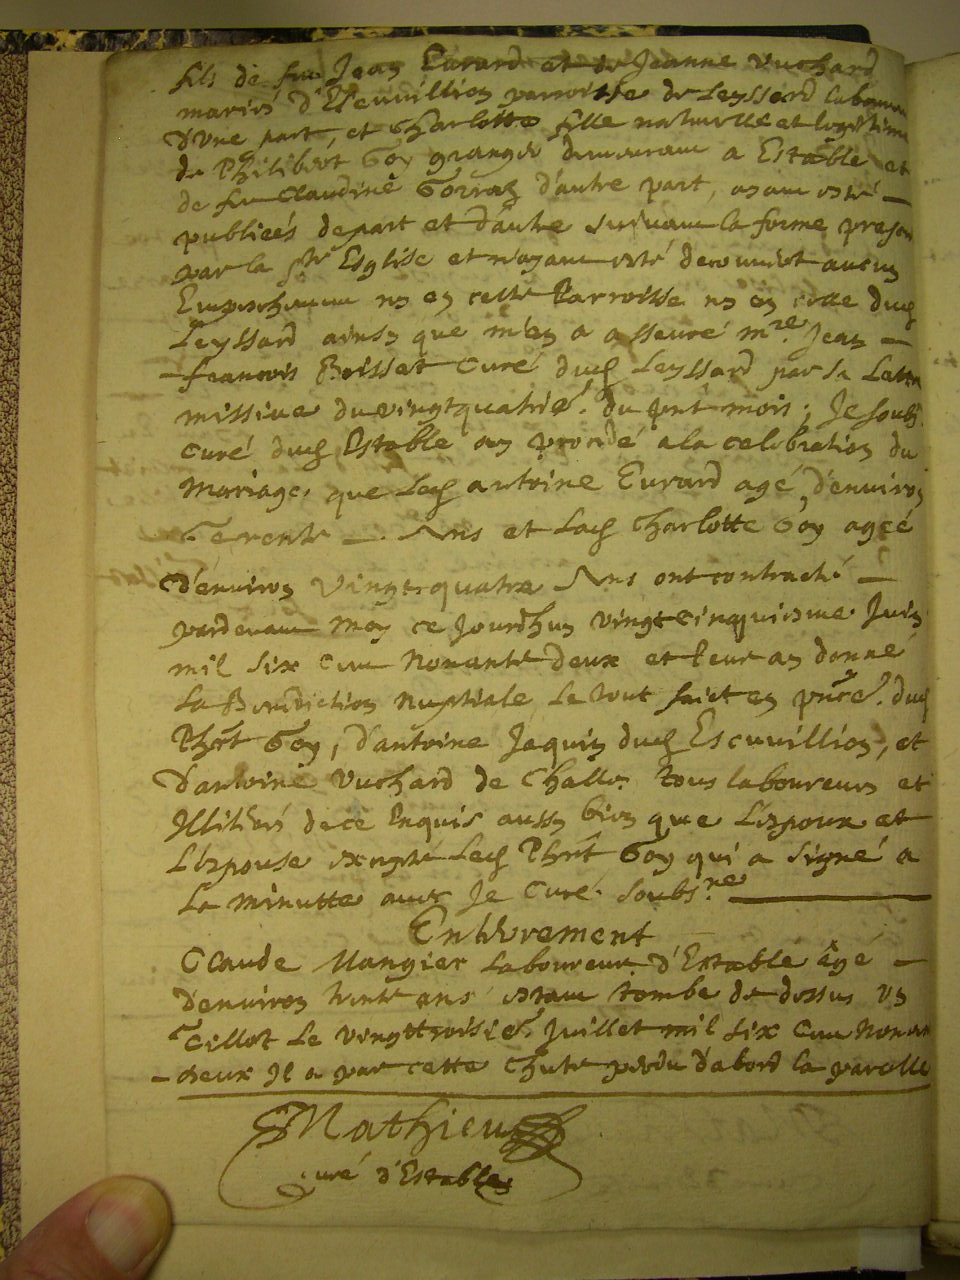 fils de feu Jean Evrard et de Jeanne Vuchard
mariés d'Escuvillion parroisse de Leyssard laboureur
d'Une part, et Charlotte fille naturelle et legitime
de Philibert Goy granger demeurant a Estable et
de feu Claudine d'autre part, ayant esté —
publiées depart et d'autre suivant la forme prescr
par la ste Esglise et n'ayant esté decouvert aucun
Empeschement ny en cette Parroisse ny en celle dud
Leyssard ainsy que m'en a asseuré mre Jean —
– francois Boisset Curé dud Leyssard par sa Lettre
missive du vingtquatrie. du pnt mois; Je soubs.
Curé dud Estable ay procedé a la celebration du
Mariage. que Led antoine Evrard agé d'environ
Trente — Ans et Lad Charlotte Goy agée
d'environ Vingt quatre Ans ont contracté —
pardevant Moy ce Jourdhuy vingtcinquiesme Juin
mil six Cent Nonante deux et Leur ay donné
La Benediction Nuptiale, Le tout faict en pnce. dud
Phrt Goy, d'antoine Jaquin dud Escuvillion, et
d'antoine Vuchard de Challes Tous laboureurs et
Illiterés de ce Enquis aussy bien que L'espoux et
L'espouse excepté Led Phrt Goy qui a signé a
La Minutte avec Je Curé. soubs.ne
Enterrement
Claude Mangier Laboureur d'Estable âgé —
d'environ trente ans estant tombé de dessus un
Tillot Le vingttroisie. Juillet mil six Cent Nonan
– deux Il a par cette Chute perdu d'abord la parolle
Mathieu
curé d'Estable